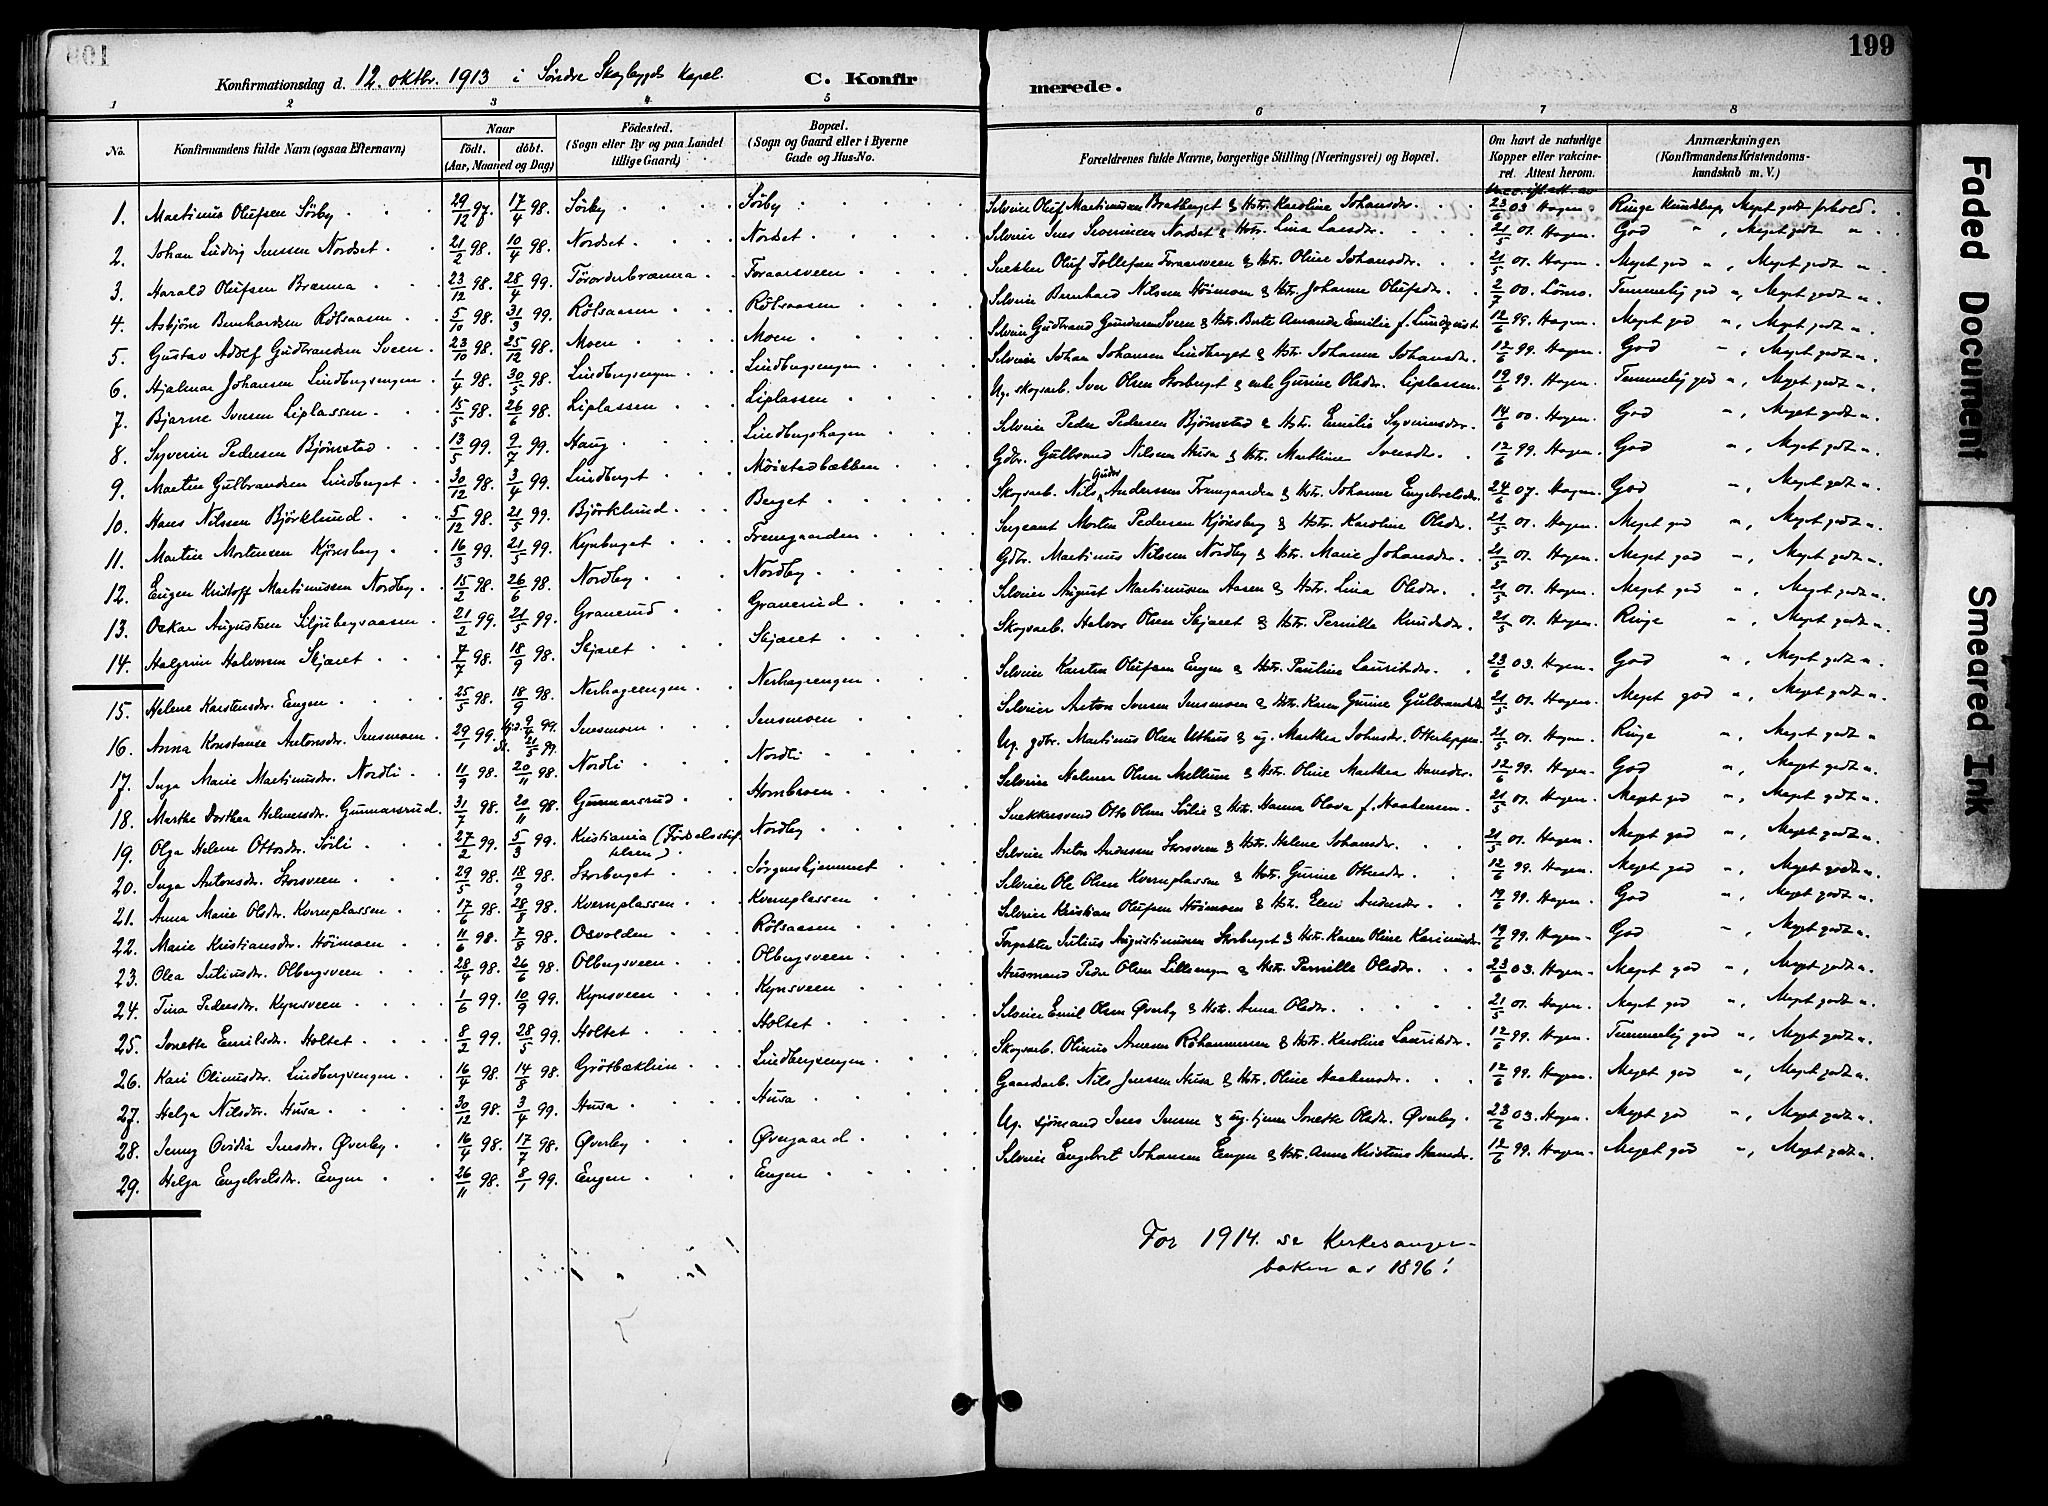 199
Konfirmationsdag d. 12. oktbr. 1913 i Søndre Skogbygds Kapel. C. Konfirmerede.
1 2 3 4 5 6 7 8
No. Konfirmandens fulde Navn (ogsaa Efternavn) Naar födt. döbt. (Aar, Maaned og Dag) Födested. (Sogn eller By og paa Landet tillige Gaard) Bopæl. (Sogn og Gaard eller i Byerne Gade og Hus-No. Forældrenes fulde Navne, borgerlige Stilling (Næringsvei) og Bopæl. Om havt de naturlige Kopper eller vakcineret. Attest herom. Anmærkninger. (Konfirmandens Kristendomskundskab m. V.)
1. Martinus Olufsen Sörby 29/12 97. 17/4 98. Sörby Sörby Selveier Oluf Martinusen Bratberget & Hstr. Karoline Johansdr. 23/6 03 Hagen Ringe Kundskap, Meget godt forhold
2. Johan Ludvig Jenssen Nordset 21/2 98. 10/4 98. Nordset Nordset Selveier Jens Severinsen Nordset & Hstr. Lina Larsdr. 21/5 01. Hagen God " , Meget godt "
3. Harald Olufsen Brænna 23/12 98. 28/4 99. Törorderbrænna Foraarsveen Snekker Oluf Tollefsen Foraarsveen & Hstr. Oline Johansdr. 21/5 01. Hagen. Meget god " , Meget godt "
4. Asbjörn Bernhardsen Rölsaasen 5/10 98. 31/3 99. Rölsaasen Rölsaasen Selveier Bernhard Nilsen Höimoen & Hstr. Johanne Olufsdr. 2/7 00. Lömo. Temmelig god " , Meget godt "
5. Gustav Adolf Gudbrandsen Sveen 23/10 98. 25/12 98. Moen Moen Selveier Gudbrand Gundersen Sveen & Hstr. Berte Amanda Emilie f. Lundquist 12/6 99. Hagen Meget god " , Meget godt "
6. Hjalmar Johansen Lindbergsengen 1/4 98. 30/5 98. Lindbergsengen Lindbergsengen Selveier Johan Johansen Lindberget & Hstr. Johanne Johansdr. 12/6 99. Hagen God " , Meget godt "
7. Bjarne Iversen Liplassen 15/5 98. 26/6 98. Liplassen Liplassen Ug. skogsarb. Iver Olsen Storberget & enke Gurine Olsdr. Liplassen 19/6 99. Hagen Temmelig god " , Meget godt "
8. Syverin Pedersen Björnstad 13/5 99. 9/7 99. Haug Lindbergshagen Selveier Peder Pedersen Björnstad & Hstr. Emilie Syverinsdr. 14/6 00. Hagen God " , Meget godt "
9. Martin Gulbrandsen Lindberget 30/12 98. 3/4 99. Lindberget Möistadbækken Gdbr. Gulbrand Nilsen Husa & Hstr. Marthine Iversdr. 12/6 99. Hagen God " , Meget godt "
10. Hans Nilsen Björklund 5/12 98. 21/5 99. Björklund Berget Skogsarb. Nils Anderssen Framgaarden & Hstr. Johanne Engebretsdr. 24/6 07. Hagen God " , Meget godt "
11. Martin Mortensen Kjönsberg 16/3 99. 21/5 99. Kynberget Fremgaarden Sergeant Morten Pedersen Kjönsberg & Hstr. Karoline Olsdr. 21/5 01. Hagen Meget god " , Meget godt "
12. Eugen Kristoff Martinussen Nordby 15/2 98. 26/6 98. Nordby Nordby Gdbr. Martinus Nilsen Nordby & Hstr. Marie Johansdr. 21/5 01. Hagen Meget god " , Meget godt "
13. Oskar Augustsen Siljubergsaasen 21/2 99. 21/5 99. Granerud Granerud Selveier August Martinusen Aasen & Hstr. Lina Olsdr. 21/5 01. Hagen Meget god " , Meget godt "
14. Halgrim Halvorsen Skjæret 7/7 98. 18/9 98. Skjæret Skjæret Skogsarb. Halvor Olsen Skjæret & Hstr. Pernille Knudsdr. 21/5 01. Hagen. Ringe " , Meget godt "
15. Helene Karstensdr. Engen 25/5 98. 18/9 98. Nerhagengen Nerhagengen Selveier Karsten Olufsen Engen & Hstr. Pauline Lauritsdr. 23/6 03. Hagen God " , Meget godt "
16. Anna Konstanse Antonsdr. Jensmoen 29/1 99. 9/4 99. 21/5 99. Jensmoen Jensmoen Selveier Anton Iversen Jensmoen & Hstr. Karen Gurine Gulbrandsdr. 21/5 01. Hagen. Meget god " , Meget godt "
17. Inga Marie Martinusdr. Nordli 11/9 98. 20/11 98. Nordli Nordli Ug. gdbr. Martinus Olsen Uthus & ug. Marthea Johnsdr. 21/5 01. Hagen Ringe " , Meget godt "
18. Marthe Dorthea Helmersdr. Gunnarsrud 31/7 98. 20/11 98. Gunnarsrud Hornbroen Selveier Helmer Olsen Mellum & Hstr. Oline Marthea Hansdr. 12/6 99. Hagen God " , Meget godt "
19. Olga Helene Ottosdr. Sörli 27/2 99. 5/3 99. Kristiania (Födselsstiftelsen) Nordby Snekkersvend Otto Olsen Sörlie & Hstr. Hanna Olava f. Haakensen 21/5 01. Hagen Meget god " , Meget godt "
20. Inga Antonsdr. Storsveen 29/5 98. 18/9 98. Storberget Sörgneshjemmet Selveier Anton Andersen Storsveen & Hstr. Helene Johansdr. 21/5 01. Hagen Meget god " , Meget godt "
21. Anna Marie Olsdr. Kvernplassen 17/6 98. 28/8 98. Kvernplassen Kvernplassen Selveier Ole Olsen Kvernplassen & Hstr. Gurine Ottersdr. 12/6 99. Hagen Meget god " , Meget godt "
22. Marie Kristiansdr. Höimoen 11/6 98. 7/8 98. Osvolden Rölsaasen Selveier Kristian Olufsen Höimoen & Hstr. Eleni Andersdr. 19/6 99. Hagen God " , Meget godt "
23. Olea Juliusdr. Olbergsveen 28/4 98. 26/6 98. Olbergsveen Olbergsveen Forpakter Julius Augustinussen Storberget & Hstr. Karen Oline Karinusdr. 19/6 99. Hagen God " , Meget godt "
24. Tina Pedersdr. Kynsveen 1/6 99. 10/9 99. Kynsveen Kynsveen Husmand Peder Olsen Lillengen & Hstr. Pernille Olsdr. 23/6 03. Hagen Meget god " , Meget godt "
25. Jonette Emilsdr. Holtet 8/2 99. 28/5 99. Holtet Holtet Selveier Emil Olsen Øverby & Hstr. Anna Olsdr. 21/5 01. Hagen. Meget god " , Meget godt "
26. Kari Olinusdr. Lindbergsengen 16/4 98. 14/8 98. Grötbæklien Lindbergsengen Skogsarb. Olinus Arnesen & Hstr. Karoline Lauritsdr. 12/6 99. Hagen Temmelig god " , Meget godt "
27. Helga Nilsdr. Husa 30/12 98. 3/4 99. Husa Husa Gaardarb. Nils Jenssen Husa & Hstr. Oline Haakensdr. 12/6 99. Hagen. Meget god " , Meget godt "
28. Jenny Ovidia Jensdr. Øverby 16/4 98. 17/7 98. Øverby Øvergaard Ug. sjömand Jens Jensen & ug. tjener Jonette Olsdr. Øverby 23/6 03. Hagen Meget god " , Meget godt "
29. Helga Engebretsdr. Engen 26/11 98. 8/1 99. Engen Engen Selveier Engebret Johansen Engen & Hstr. Anne Kristine Hansdr. 12/6 99. Hagen. Meget god " , Meget godt "
For 1914. se Kirkesanger-
boken av 1896!
Faded Document
Smeared Ink